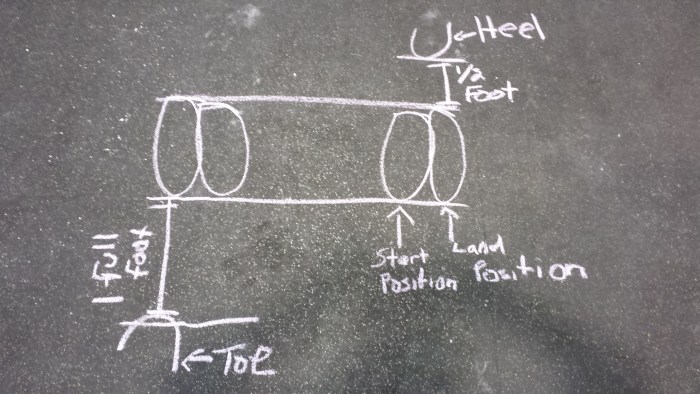 Heel
1/2
Foot
1 Full
Foot
Start
Position
Land
Position
Toe